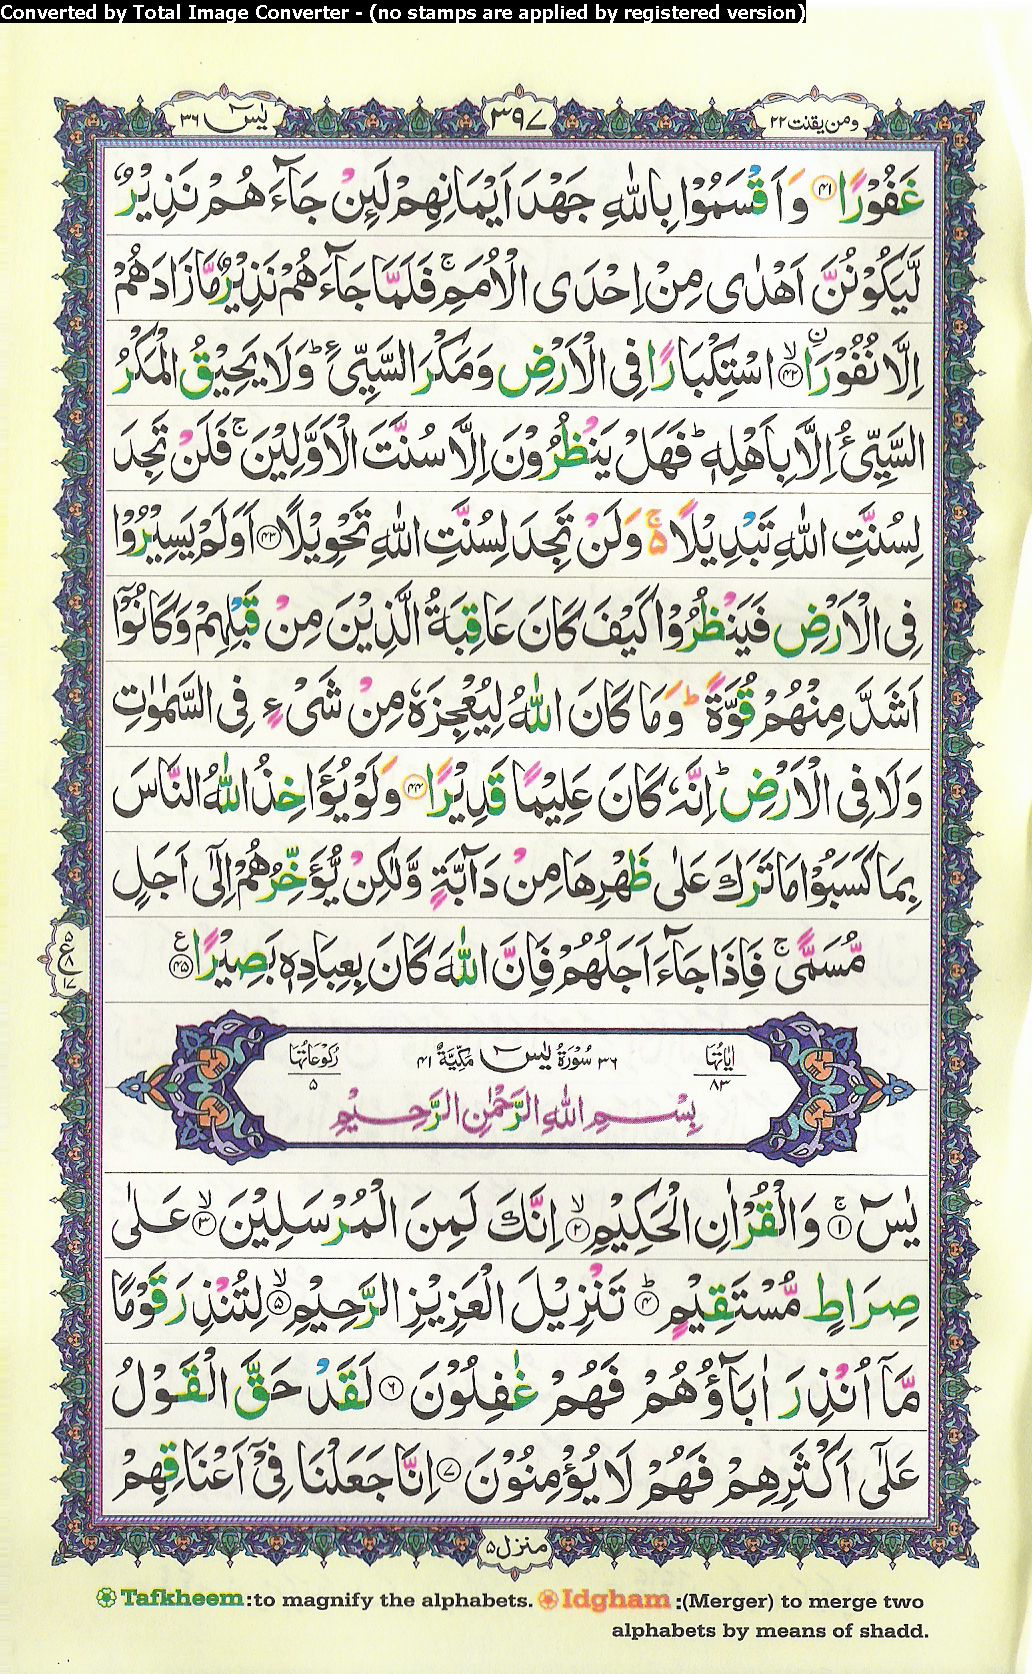 Converted by Total Image Converter - (no stamps are applied by registered version)
ومن یقنت ۲۲
۳۹۷
یٰسٓ ۳۶
غَفُوْرًا ﴿۴۱﴾ وَ اَقْسَمُوْا بِاللّٰهِ جَهْدَ اَیْمَانِهِمْ لَىِٕنْ جَآءَهُمْ نَذِیْرٌ
لَّیَكُوْنُنَّ اَهْدٰى مِنْ اِحْدَى الْاُمَمِ ۚ فَلَمَّا جَآءَهُمْ نَذِیْرٌ مَّا زَادَهُمْ
اِلَّا نُفُوْرَاۙ ﴿۴۲﴾ اسْتِكْبَارًا فِی الْاَرْضِ وَ مَكْرَ السَّیِّئِ ؕ وَ لَا یَحِیْقُ الْمَكْرُ
السَّیِّئُ اِلَّا بِاَهْلِهٖ ؕ فَهَلْ یَنْظُرُوْنَ اِلَّا سُنَّتَ الْاَوَّلِیْنَ ۚ فَلَنْ تَجِدَ
لِسُنَّتِ اللّٰهِ تَبْدِیْلًا ۚ۬ وَ لَنْ تَجِدَ لِسُنَّتِ اللّٰهِ تَحْوِیْلًا ﴿۴۳﴾ اَوَ لَمْ یَسِیْرُوْا
فِی الْاَرْضِ فَیَنْظُرُوْا كَیْفَ كَانَ عَاقِبَةُ الَّذِیْنَ مِنْ قَبْلِهِمْ وَ كَانُوْۤا
اَشَدَّ مِنْهُمْ قُوَّةً ؕ وَ مَا كَانَ اللّٰهُ لِیُعْجِزَهٗ مِنْ شَیْءٍ فِی السَّمٰوٰتِ
وَ لَا فِی الْاَرْضِ ؕ اِنَّهٗ كَانَ عَلِیْمًا قَدِیْرًا ﴿۴۴﴾ وَ لَوْ یُؤَاخِذُ اللّٰهُ النَّاسَ
بِمَا كَسَبُوْا مَا تَرَكَ عَلٰى ظَهْرِهَا مِنْ دَآبَّةٍ وَّ لٰكِنْ یُّؤَخِّرُهُمْ اِلٰۤى اَجَلٍ
مُّسَمًّى ۚ فَاِذَا جَآءَ اَجَلُهُمْ فَاِنَّ اللّٰهَ كَانَ بِعِبَادِهٖ بَصِیْرًا ﴿۴۵﴾ ع
۵
ع ۸
۱۷
اٰیاتُهَا ۸۳
۳۶ سُوْرَةُ یٰسٓ مَكِّیَّةٌ ۴۱
رُكُوْعَاتُهَا ۵
بِسْمِ اللّٰهِ الرَّحْمٰنِ الرَّحِیْمِ
یٰسٓ ۚ ﴿۱﴾ وَ الْقُرْاٰنِ الْحَكِیْمِ ۙ ﴿۲﴾ اِنَّكَ لَمِنَ الْمُرْسَلِیْنَ ۙ ﴿۳﴾ عَلٰى
صِرَاطٍ مُّسْتَقِیْمٍ ؕ ﴿۴﴾ تَنْزِیْلَ الْعَزِیْزِ الرَّحِیْمِ ۙ ﴿۵﴾ لِتُنْذِرَ قَوْمًا
مَّاۤ اُنْذِرَ اٰبَآؤُهُمْ فَهُمْ غٰفِلُوْنَ ﴿۶﴾ لَقَدْ حَقَّ الْقَوْلُ
عَلٰۤى اَكْثَرِهِمْ فَهُمْ لَا یُؤْمِنُوْنَ ﴿۷﴾ اِنَّا جَعَلْنَا فِیْۤ اَعْنَاقِهِمْ
منزل ۵
Tafkheem:to magnify the alphabets. Idgham :(Merger) to merge two
alphabets by means of shadd.